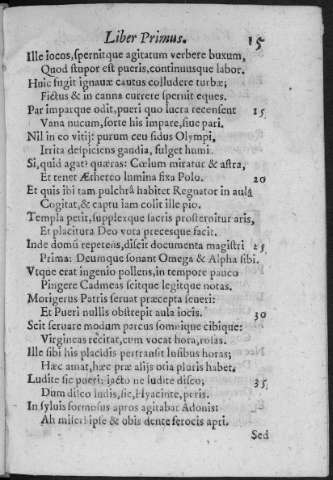 Liber Primus. 15
Ille iocos, spernitque agitatum verbere buxum,
Quod stupor est pueris, continuusque labor.
Huic fugit ignauæ cautus colludere turbæ;
Fictus & in canna currere spernit eques.
Par imparque odit, pueri quo lucra recensent 15
Vana nucum, forte his impare, siue pari.
Nil in eo vitij: purum ceu sidus Olympi.
Irrita despiciens gaudia, fulget humi.
Si, quid agat quæras: Cœlum miratur & astra,
Et tenet Æthereo lumina fixa Polo. 20
Et quis ibi tam pulchrâ habitet Regnator in aulâ
Cogitat, & captu iam colit ille pio.
Templa petit, supplexque sacris prosternitur aris,
Et placitura Deo vota precesque facit.
Inde domũ repetens, discit documenta magistri 25
Prima: Deumque sonant Omega & Alpha sibi.
Vtque erat ingenio pollens, in tempore pauco
Pingere Cadmeas scitque legitque notas.
Morigerus Patris seruat præcepta seueri:
Et Pueri nullis obstrepit aula iocis. 30
Scit seruare modum parcus somnique cibique:
Virgineas recitat, cum vocat hora, rosas.
Ille sibi his placidis pertransit lusibus horas;
Hæc amat, hæc præ alijs otia pluris habet.
Ludite sic pueri: iacto ne ludite disco; 35
Dum disco ludis, sic, Hyacinte, peris.
In syluis formosus apros agitabat Adonis:
Ah miseri ipse & obis dente ferocis apri.
Sed